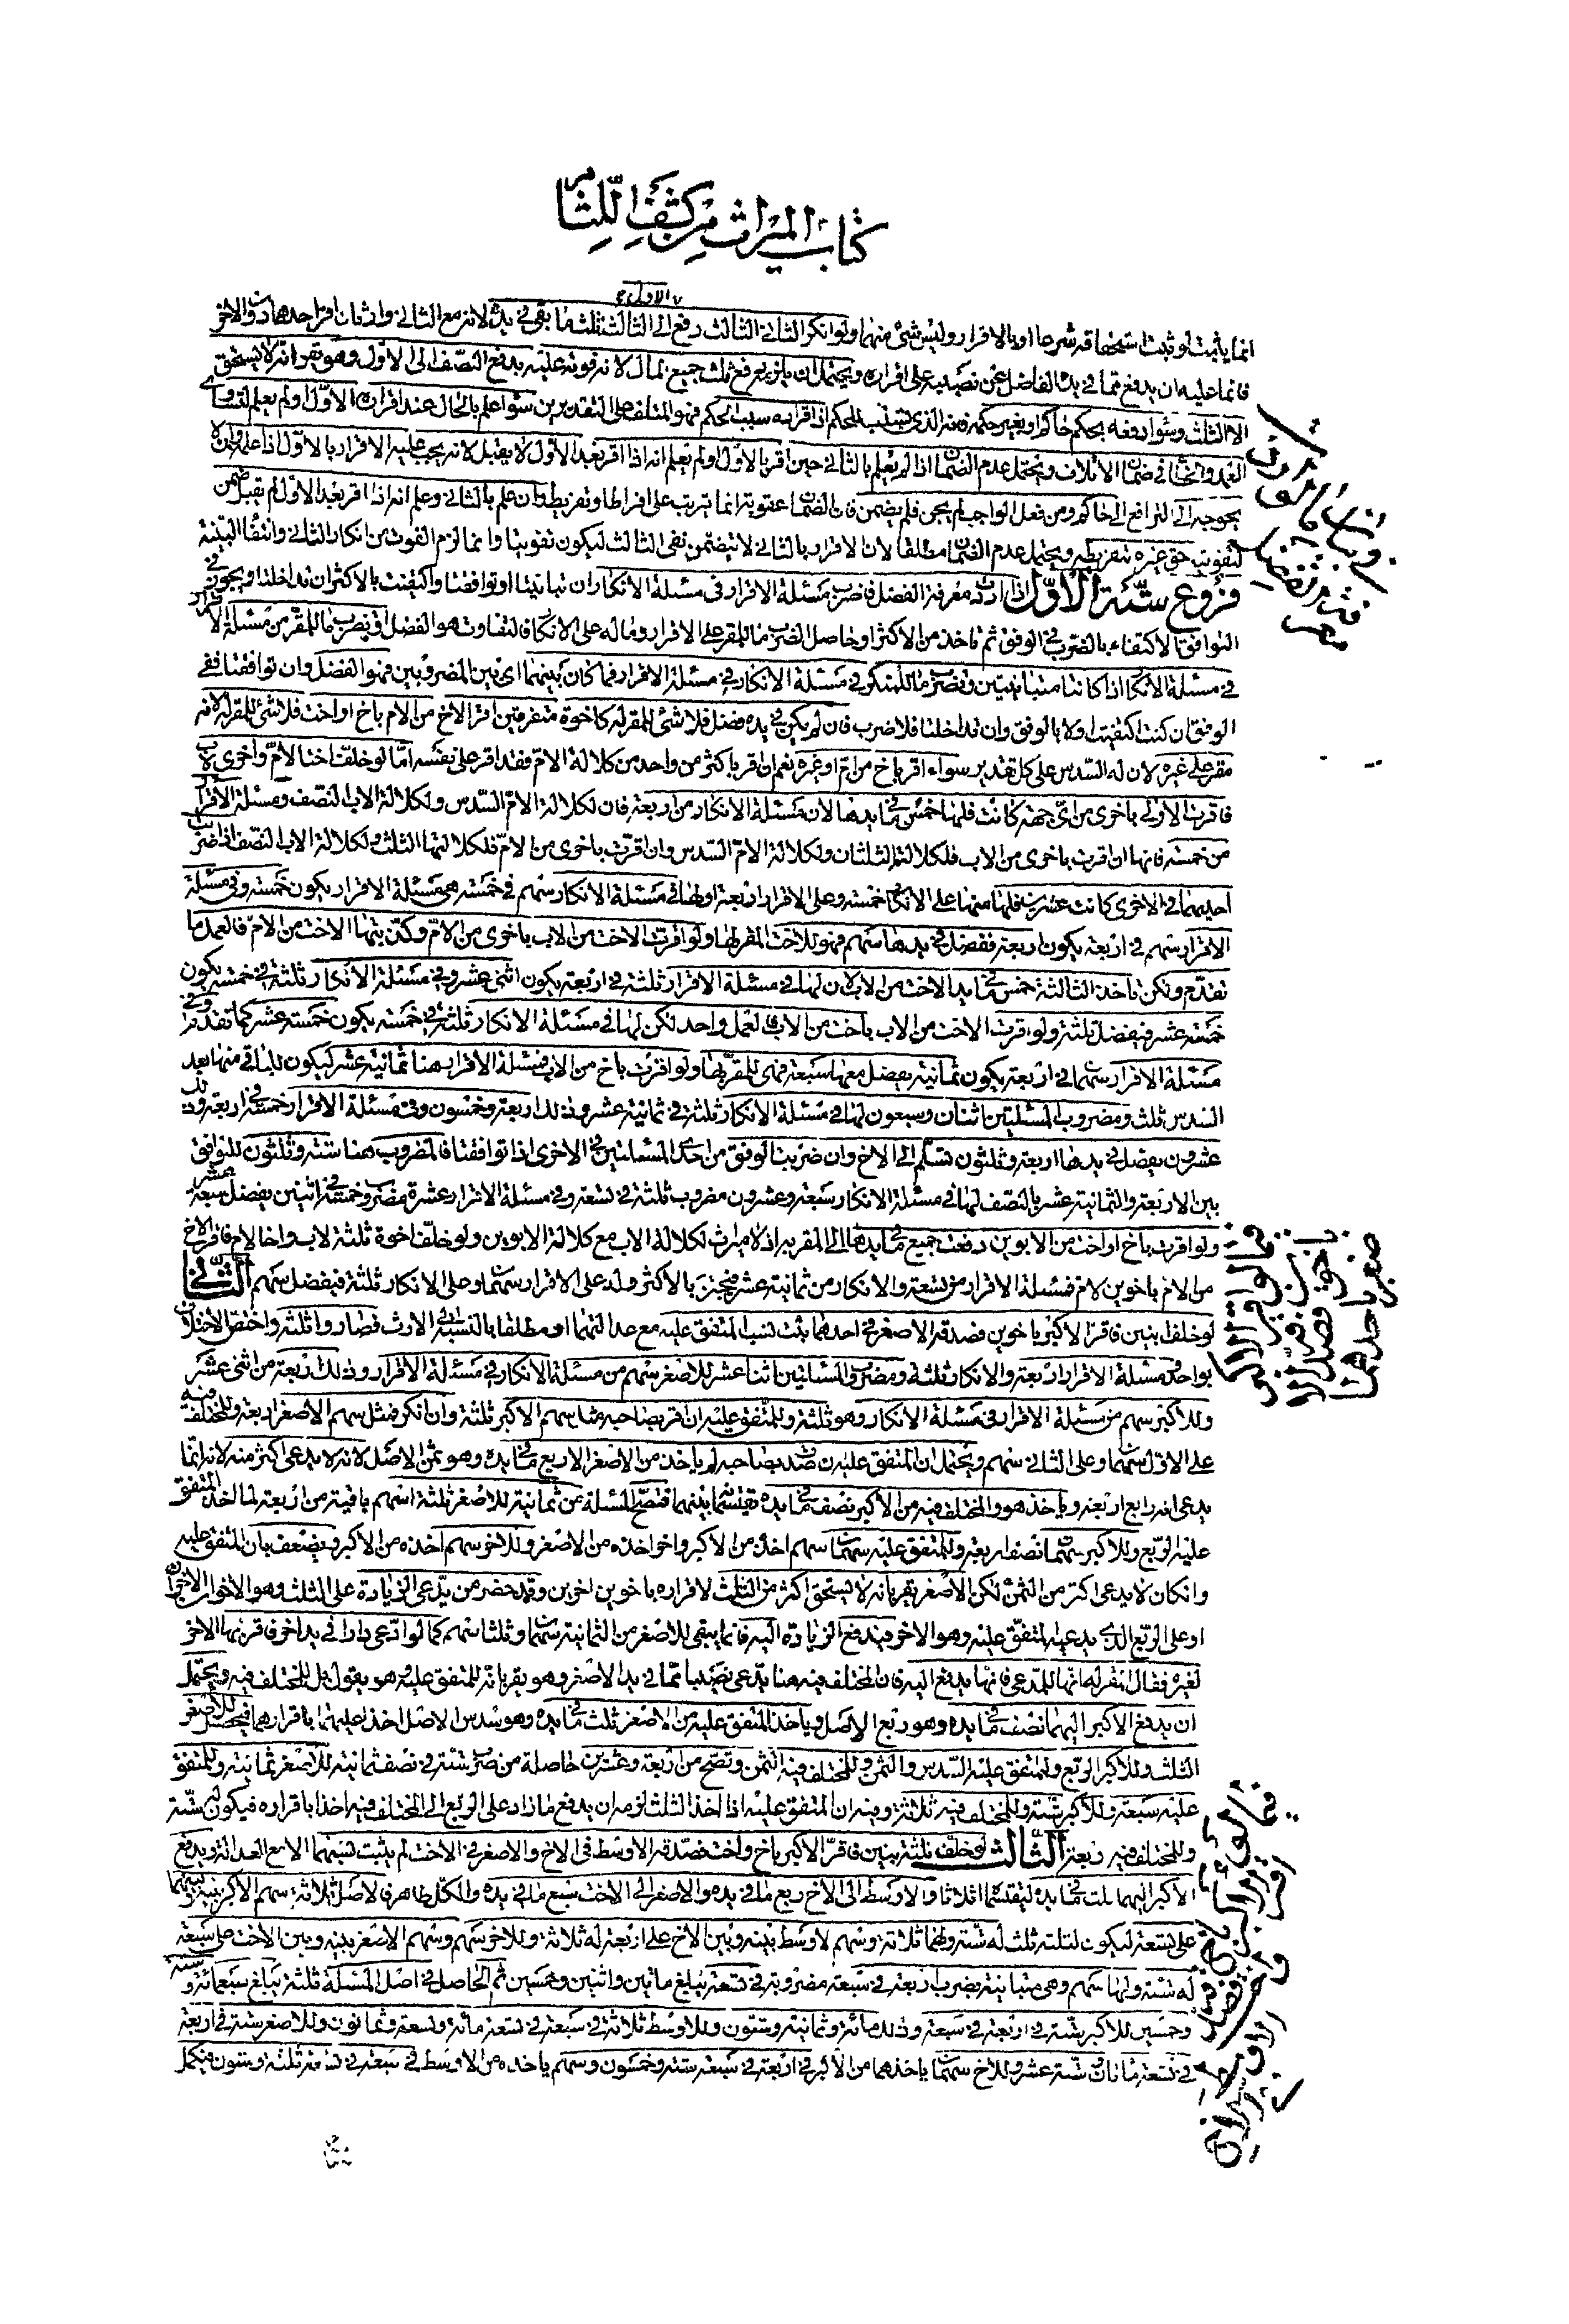 كتاب الميراث من كشف اللثام
انما يثبت لو ثبت استحقاقه شرعا او بالاقرار وليس شئ منهما ولو انكر الثاني الثالث دفع الاول الى الثالث ثلث ما بقى في يده لانه مع الثاني وارثان اقر احدهما دون الاخر
فانما عليه ان يدفع مما في يده الفاضل عن نصيبه على اقراره ويحتمل ان يلزمه دفع ثلث جميع المال لانه فوته عليه بدفع النصف الى الاول وهو يقر انه لا يستحق
الا الثلث وسواء دفعه بحكم حاكم او بغير حكمه فانه الذي تسبب للحكم اذ اقراره سبب الحكم فهو المتلف على التقديرين سواء علم بالحال عند اقراره الاول او لم يعلم لتساوى
العمد والخطا في ضمان الاتلاف ويحتمل عدم الضمان اذا لم يعلم بالثاني حين اقر بالاول او لم يعلم انه اذا اقر بعد الاول لا يقبل لانه يجب عليه الاقرار بالاول اذا علمه ولان
يحوجه الى الترافع الى حاكم ومن فعل الواجب لم يجن فلم يضمن فان الضمان عقوبة انما تترتب على افراط او تفريط وان علم بالثاني وعلم انه اذا اقر بعد الاول لم يقبل ضمن
لتفويته حق غيره بتفريطه ويحتمل عدم الضمان مطلقا لان الاقرار بالثاني لا يتضمن نفى الثالث ليكون تفويتا وانما لزم الفوت من انكار الثاني وانتفاء البينة
فروع ستة الاول اذا اردت معرفة الفضل فاضرب مسئلة الاقرار في مسئلة الانكار ان تباينتا او توافقتا واكتفيت بالاكثر ان تداخلتا ويجوز في
التوافق الاكتفاء بالضرب في الوفق ثم تاخذ من الاكثر او حاصل الضرب ما للمقر على الاقرار وما له على الانكار فالتفاوت هو الفضل او تضرب ما للمقر من مسئلة الاقرار
في مسئلة الانكار اذا كانتا متباينتين وتضرب ما للمنكر في مسئلة الانكار في مسئلة الاقرار فما كان بينهما اى بين المضروبين فهو الفضل وان توافقتا ففي
الوفق ان كنت اكتفيت اولا بالوفق وان تداخلتا فلا ضرب فان لم يكن في يده فضل فلا شئ للمقر له كاخوة متفرقين اقر الاخ من الام باخ او اخت فلا شئ للمقر له لانه
مقر على غيره لان له السدس على كل تقدير سواء اقر باخ من ام او غيره نعم ان اقر باكثر من واحد من كلالة الام فقد اقر على نفسه اما لو خلف اختا لام واخرى لاب
فاقرت الاولى باخرى من اى جهة كانت فلها خمس ما في يدها لان مسئلة الانكار من اربعة فان لكلالة الام السدس ولكلالة الاب النصف ومسئلة الاقرار
من خمسة فانها ان اقرت باخرى من الاب فلكلالتها الثلثان ولكلالة الام السدس وان اقرت باخرى من الام فلكلالتها الثلث ولكلالة الاب النصف فاذا ضربت
احديهما في الاخرى كانت عشرين فلها منها على الانكار خمسة وعلى الاقرار اربعة او لها في مسئلة الانكار سهم في خمسة هي مسئلة الاقرار يكون خمسة وفي مسئلة
الاقرار سهم في اربعة يكون اربعة ففضل في يدها سهم فهو للاخت المقر بها ولو اقرت الاخت من الاب باخرى من الام وكذبتها الاخت من الام فالعمل ما
تقدم ولكن تاخذ الثالثة خمس ما في يد الاخت من الاب لان لها في مسئلة الاقرار ثلثة في اربعة يكون اثنى عشر وفي مسئلة الانكار ثلثة في خمسة يكون
خمسة عشر فيفضل ثلثة ولو اقرت الاخت من الاب باخت من الاب فالعمل واحد لكن لها في مسئلة الانكار ثلثة في خمسة يكون خمسة عشر كما تقدم وفي
مسئلة الاقرار سهمان في اربعة يكون ثمانية يفضل معها سبعة فهي للمقر بها ولو اقرت باخ من الاب فمسئلة الاقرار هنا ثمانية عشر ليكون للباقي منها بعد
السدس ثلث ومضروب المسئلتين اثنان وسبعون لها في مسئلة الانكار ثلثة في ثمانية عشر وذلك اربعة وخمسون وفي مسئلة الاقرار خمسة في اربعة وذلك
عشرون يفضل في يدها اربعة وثلثون تسلم الى الاخ وان ضربت الوفق من احدى المسئلتين في الاخرى اذا توافقتا فالمضروب هنا ستة وثلثون للتوافق
بين الاربعة والثمانية عشر بالنصف لها في مسئلة الانكار سبعة وعشرون مضروب ثلثة في تسعة وفي مسئلة الاقرار عشرة مضروب خمسة في اثنين يفضل سبعة عشر
ولو اقرت باخ او اخت من الابوين دفعت جميع ما في يدها الى المقر به اذ لا ميراث لكلالة الاب مع كلالة الابوين ولو خلف اخوة ثلثة لاب واخا لام فاقر الاخ
من الام باخوين لام فمسئلة الاقرار من تسعة والانكار من ثمانية عشر فيجتزى بالاكثر وله على الاقرار سهمان وعلى الانكار ثلثة فيفضل سهم الثاني
لو خلف ابنين فاقر الاكبر باخوين فصدقه الاصغر في احدهما ثبت نسب المتفق عليه مع عدالتهما او مطلقا بالنسبة الى الارث فصاروا ثلثة واختص الاختلاف
بواحد فمسئلة الاقرار اربعة والانكار ثلثة ومضروب المسئلتين اثنا عشر للاصغر سهم من مسئلة الانكار في مسئلة الاقرار وذلك اربعة من اثنى عشر
وللاكبر سهم من مسئلة الاقرار في مسئلة الانكار وهو ثلثة وللمتفق عليه ان اقر بصاحبه مثل سهم الاكبر ثلثة وان انكر فمثل سهم الاصغر اربعة وللمختلف فيه
على الاول سهمان وعلى الثاني سهم ويحتمل ان المتفق عليه ان صدق بصاحبه لم ياخذ من الاصغر الا ربع ما في يده وهو ثمن الاصل لانه لا يدعى اكثر منه لانه انما
يدعى انه رابع اربعة وياخذ هو والمختلف فيه من الاكبر نصف ما في يده يقتسمانه بينهما فتصح المسئلة من ثمانية للاصغر ثلثة اسهم باقية من اربعة لما اخذ المتفق
عليه الربع وللاكبر سهمان نصف اربعة وللمتفق عليه سهمان سهم اخذه من الاكبر واخر اخذه من الاصغر وللاخر سهم اخذه من الاكبر ويضعف بان المتفق عليه
وان كان لا يدعى اكثر من الثمن لكن الاصغر يقر بانه لا يستحق اكثر من الثلث لاقراره
او على الربع الذى يدعيه المتفق عليه وهو الاخر فيدفع الزيادة اليه فانما يبقى للاصغر من الثمانية سهمان وثلثا سهم كما لو ادعى دارا في يد اخر فاقر بها الاخر
لغيره فقال المقر له انما هي للمدعى فانها يدفع اليه فان المختلف فيه هنا يدعى نصيبا مما في يد الاصغر وهو يقر بانه للمتفق عليه وهو يقول بل للمختلف فيه ويحتمل
ان يدفع الاكبر اليهما نصف ما في يده وهو ربع الاصل وياخذ المتفق عليه من الاصغر ثلث ما في يده وهو سدس الاصل اخذا عليهما باقرارهما فيحصل للاصغر
الثلث وللاكبر الربع وللمتفق عليه السدس والثمن وللمختلف فيه الثمن وتصح من اربعة وعشرين حاصلة من ضرب ستة في نصف ثمانية للاصغر ثمانية وللمتفق
عليه سبعة وللاكبر ستة وللمختلف فيه ثلاثة وفيه ان المتفق عليه اذا اخذ الثلث لزمه ان يدفع ما زاد على الربع الى المختلف فيه اخذا باقراره فيكون له ستة
وللمختلف فيه اربعة الثالث لو خلف ثلثة بنين فاقر الاكبر باخ واخت فصدقه الاوسط في الاخ والاصغر في الاخت لم يثبت نسبهما الا مع العدالة ويدفع
الاكبر اليهما ثلث ما في يده ليقتسما اثلاثا والاوسط الى الاخ ربع ما في يده والاصغر الى الاخت سبع ما في يده والكل ظاهر فالاصل ثلاثة سهم الاكبر بينه وبينهما
على تسعة ليكون لثلثه ثلث له ستة ولهما ثلاثة وسهم الاوسط بينه وبين الاخ على اربعة له ثلاثة وللاخر سهم وسهم الاصغر بينه وبين الاخت على سبعة
له ستة ولها سهم وهي متباينة يضرب اربعة في سبعة مضروبة في تسعة يبلغ مائتين واثنين وخمسين ثم الحاصل في اصل المسئلة ثلثة يبلغ سبعمائة وستة
وخمسين للاكبر ستة في اربعة في سبعة وذلك مائة وثمانية وستون وللاوسط ثلاثة في سبعة في تسعة مائة وتسعة وثمانون وللاصغر ستة في اربعة
في تسعة مائتان وستة عشر وللاخ سهمان ياخذهما من الاكبر في اربعة في سبعة ستة وخمسون وسهم ياخذه من الاوسط في سبعة في تسعة ثلثة وستون فيكمل